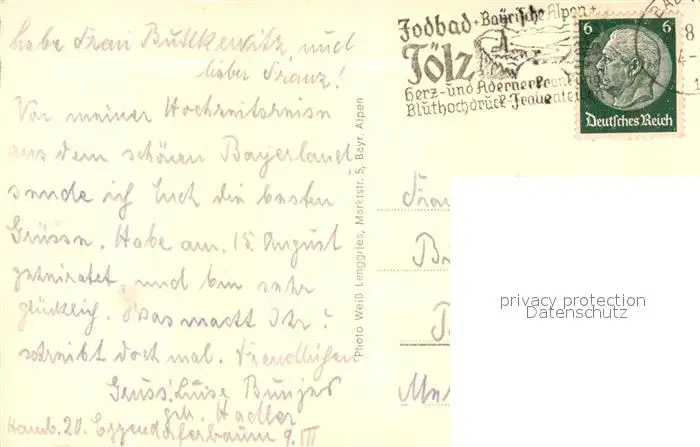 Liebe Frau Buttkewitz, und
lieber Franz!
Von meiner Hochzeitsreise
aus dem schönen Bayerland
sende ich Euch die besten
Grüsse. Habe am 15. August
geheiratet, und bin sehr
glücklich. Was macht Ihr?
schreibt doch mal. Freundlichen
Gruss! Luise Bünger
geb. Hadler
Hamb. 20. Eppendorferbaum 9. III
Photo Weiß Lenggries, Marktstr. 5, Bayr. Alpen
Jodbad + Bayrische Alpen +
Tölz
Herz- und Adernerkrankung
Bluthochdruck - Frauenleiden
BAD
8
6 6
Deutsches Reich
Frau
privacy protection
Datenschutz